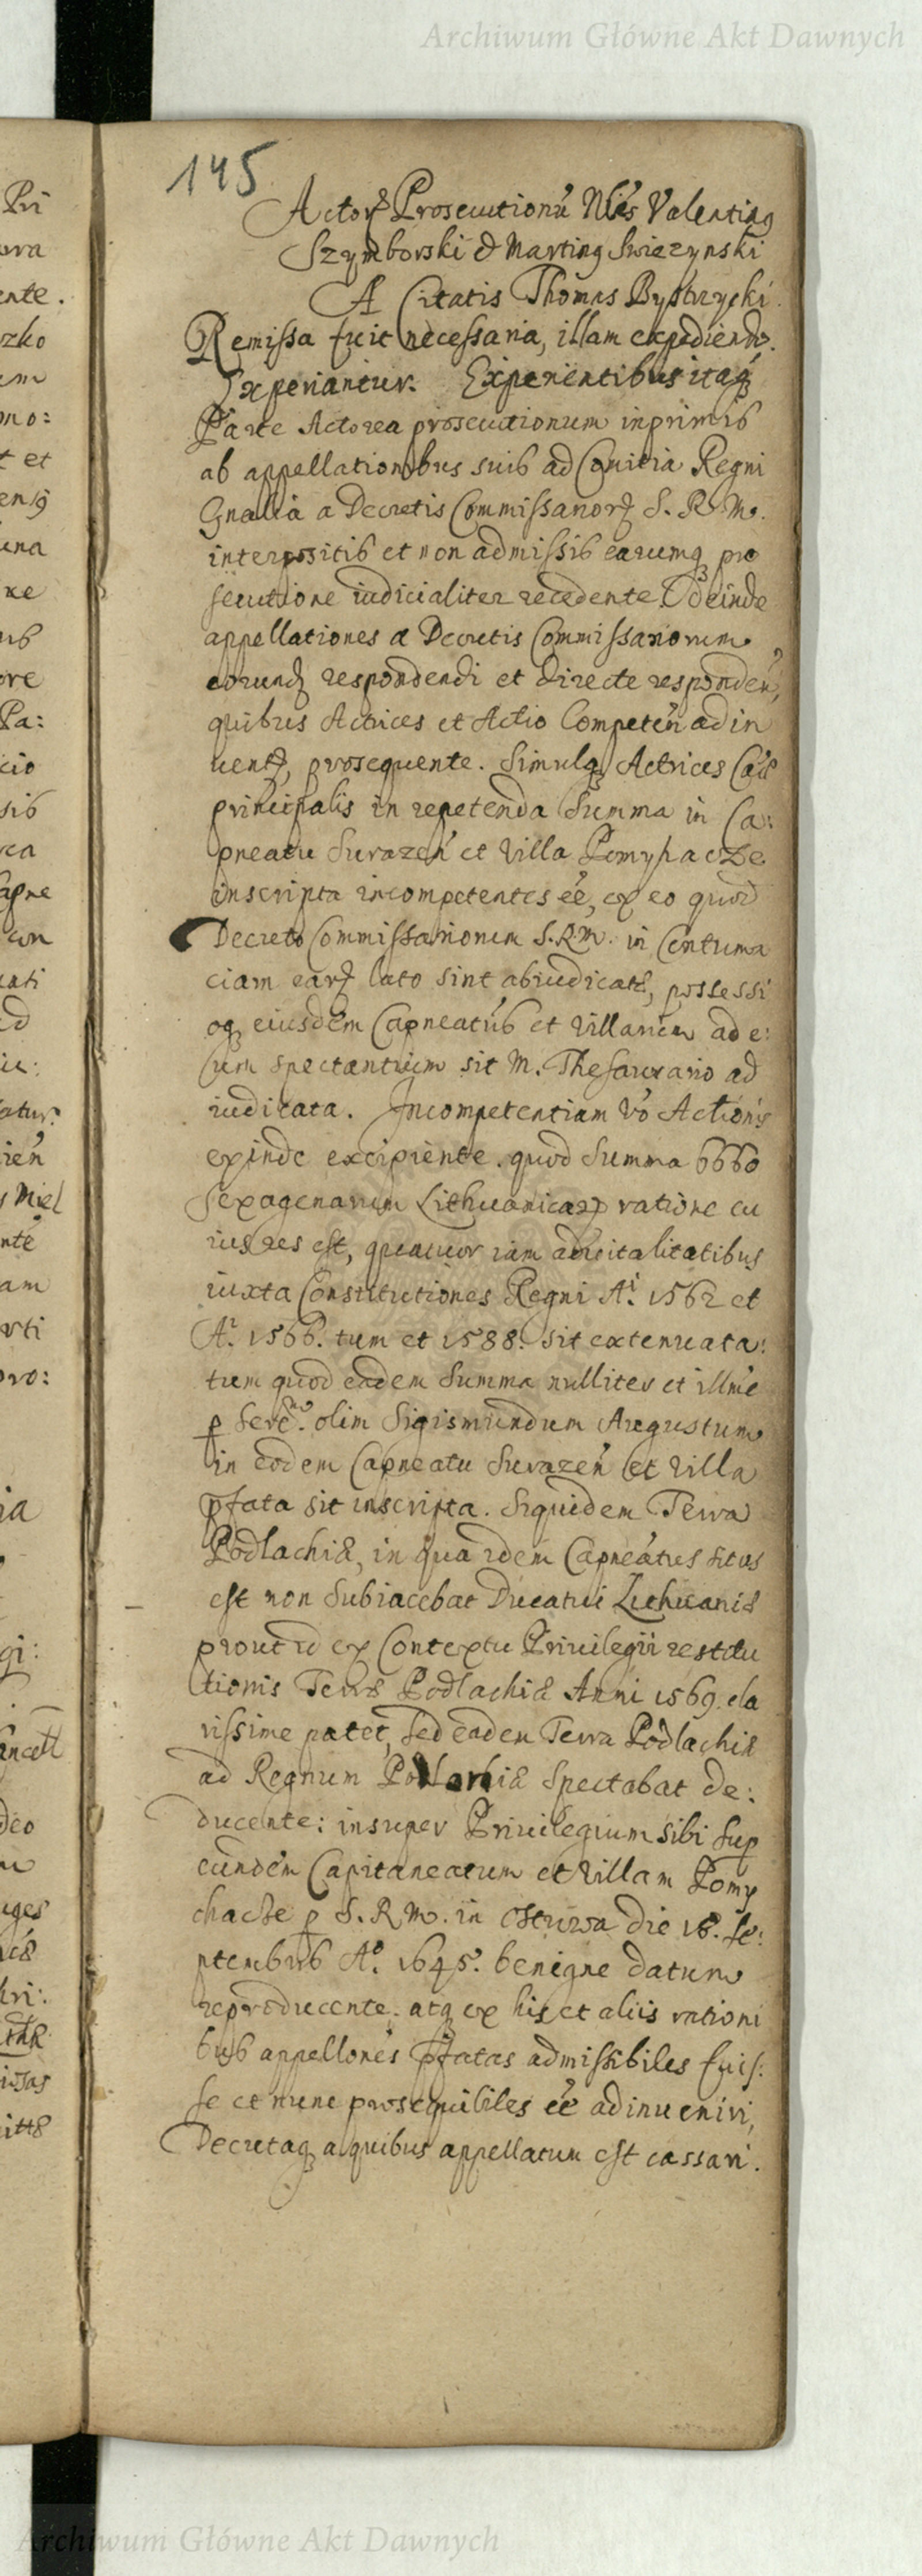 Archiwum Główne Akt Dawnych
145
Pri
Actorꝝ Prosecutionũ Nles Valentinꝰ
Szymborski & Martinꝰ Swiezynski
A Citatis Thomas Bystrzycki
ente.
Remissa fuit necessaria, illam expediendo.
zko
Experiantur. Experientibus itaqꝫ
em
Parte Actorea prosecutionum inprimis
mo:
ab appellationibus suis ad Comitia Regni
t et
Gnalia a Decretis Commissariorꝝ S. R. M.
interpositis et non admissis earumqꝫ pro
una
secutione iudicialiter recedente. Deinde
appellationes a Decretis Commissariorum
eorundꝫ respondendi et directe responden̄,
ore
quibus Actrices et Actio Competen̄ adin
Pa:
uentꝫ, prosequente. Simulqꝫ Actrices Cais
cio
principalis in repetenda Summa in Ca:
sis
pneatu Surazen̄ et Villa Pomphacze
inscripta incompetentes ee, ex eo quod
Decreto Commissariorum S.R.M. in Contuma
ciam earꝝ lato sint abiudicatæ, possessi
oqꝫ eiusdem Capneatus et Villarum ad e:
um spectantium sit M. Thesaurario ad
iudicata. Incompetentiam Vo Actionis
exinde excipiente. quod Summa 6660
sexagenarum Lithuanicarꝝ ratione cu
ius res est, quatuor iam aduitalitatibus
iuxta Constitutiones Regni Ai. 1562 et
Ai. 1566. tum et 1588. sit extenuata:
tum quod eadem Summa nulliter et illme
p Sereno. olim Sigismundum Augustum
in eodem Capneatu Surazen̄ et Villa
pfata sit inscripta. Siquidem Terra
Podlachiæ, in qua idem Capneatus situs
est non Subiacebat Ducatui Lithuaniæ
prout id ex Contextu Priuilegii restitu
tionis Terræ Podlachiæ Anni 1569. cla
rissime patet, sed eadem Terra Podlachiæ
ad Regnum Poloniæ Spectabat de:
ducente: insuper Priuilegium sibi sup
eundem Capitaneatum et Villam Pomp
hacze p S. R. M. in Ostrwa die 18. Se:
ptembris Ao. 1645. benigne datum
reproducente. atqꝫ ex his et aliis rationi
bus appellones pfatas admissibiles fuis:
se et nunc prosequibiles ee adinueniri,
Decretaqꝫ a quibus appellatum est cassari.
Archiwum Główne Akt Dawnych